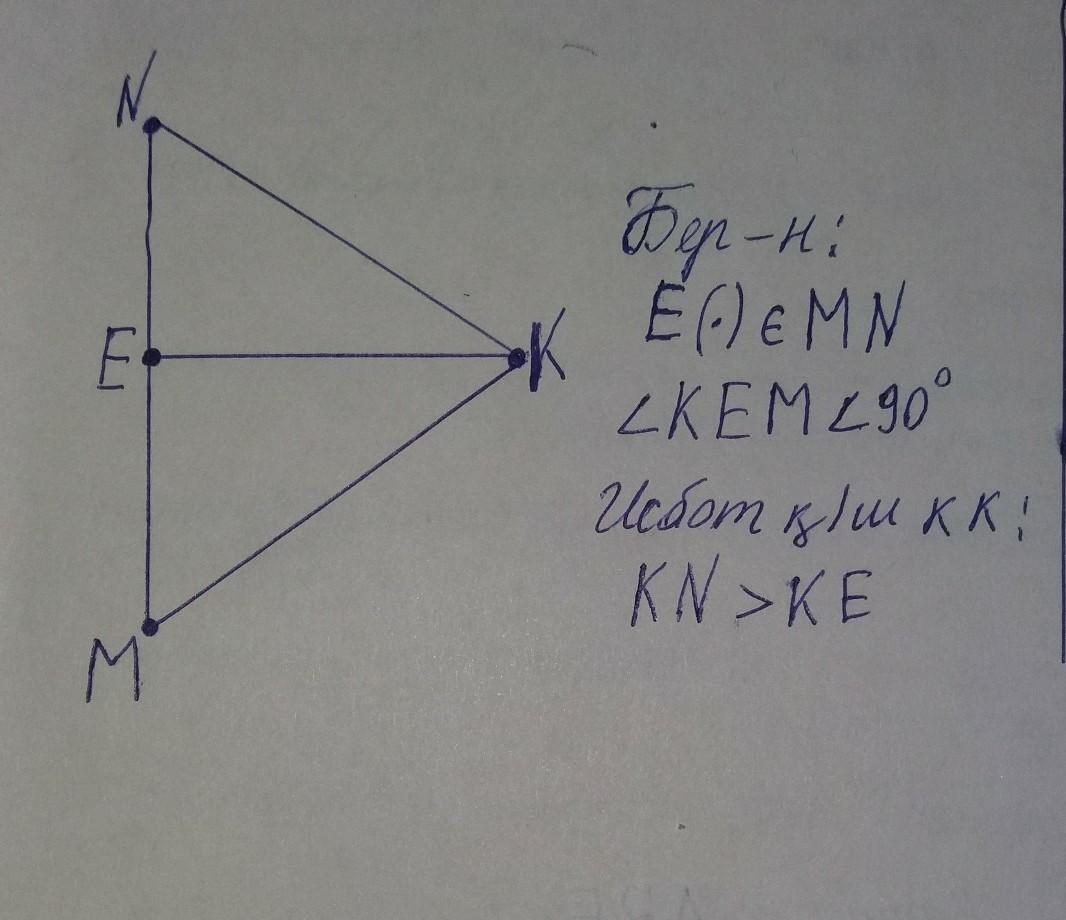 N
E
K
M
Бер-н:
E(·)∈MN
∠KEM<90°
Исбот қ/ш кк:
KN>KE